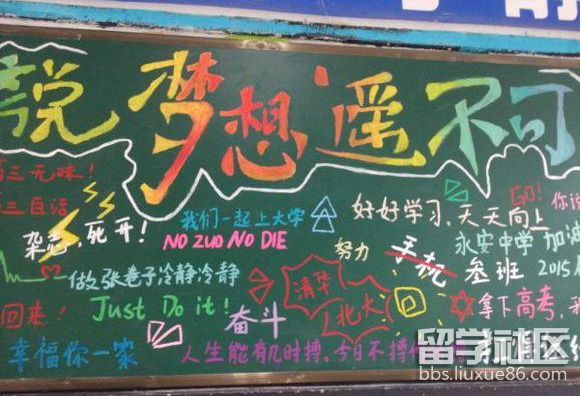 说梦想遥不可
三无味！
我们一起上大学
NO ZUO NO DIE
好好学习，天天向上
GO!
你说
杂念，死开！
努力
手机
永安中学 加油
叁班 2015
做张卷子冷静冷静
清华
北大
回来！
Just Do it!
奋斗
拿下高考，
幸福你一家
人生能有几时搏，今日不搏
留学社区
bbs.liuxue86.com